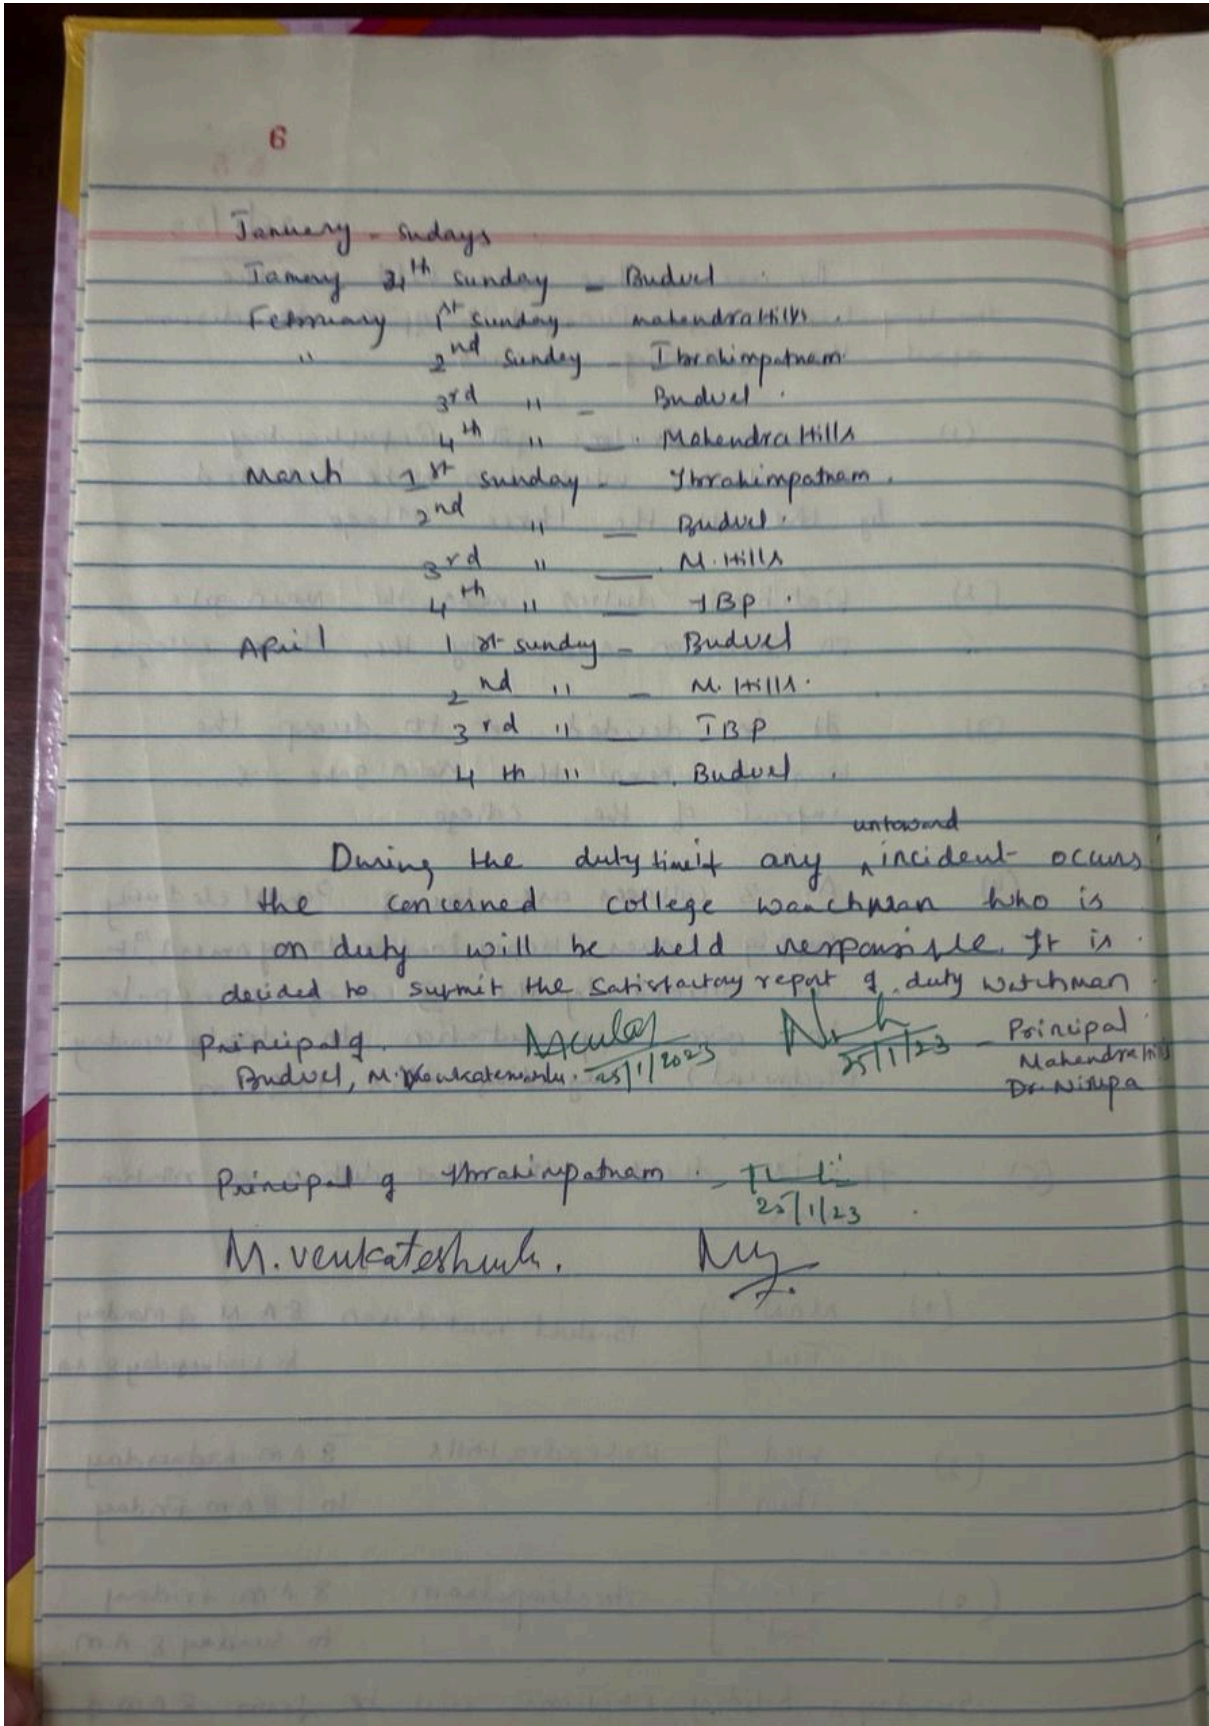 6
January - Sudays
Jamary 4th Sunday - Buduel
February 1st Sunday - Mahendra Hills.
" 2nd Sunday - Ibrahimpatnam
3rd " - Buduel.
4th " - Mahendra Hills
March 1st Sunday - Ibrahimpatnam.
2nd " - Buduel.
3rd " - M. Hills
4th " - IBP.
April 1st Sunday - Buduel
2nd " - M. Hills.
3rd " - IBP
4th " - Buduel.
untoward
During the duty time if any ^ incident occurs
the concerned college waachman who is
on duty will be held responsible. It is
decided to submit the satisfactory report of duty watchman.
Principal of 25/1/2023 25/1/23 - Principal
Buduel, M. Mahendra Hills
Dr. Nirupa
Principal of Ibrahimpatnam. -
25/1/23
M. Venkateshwarlu.